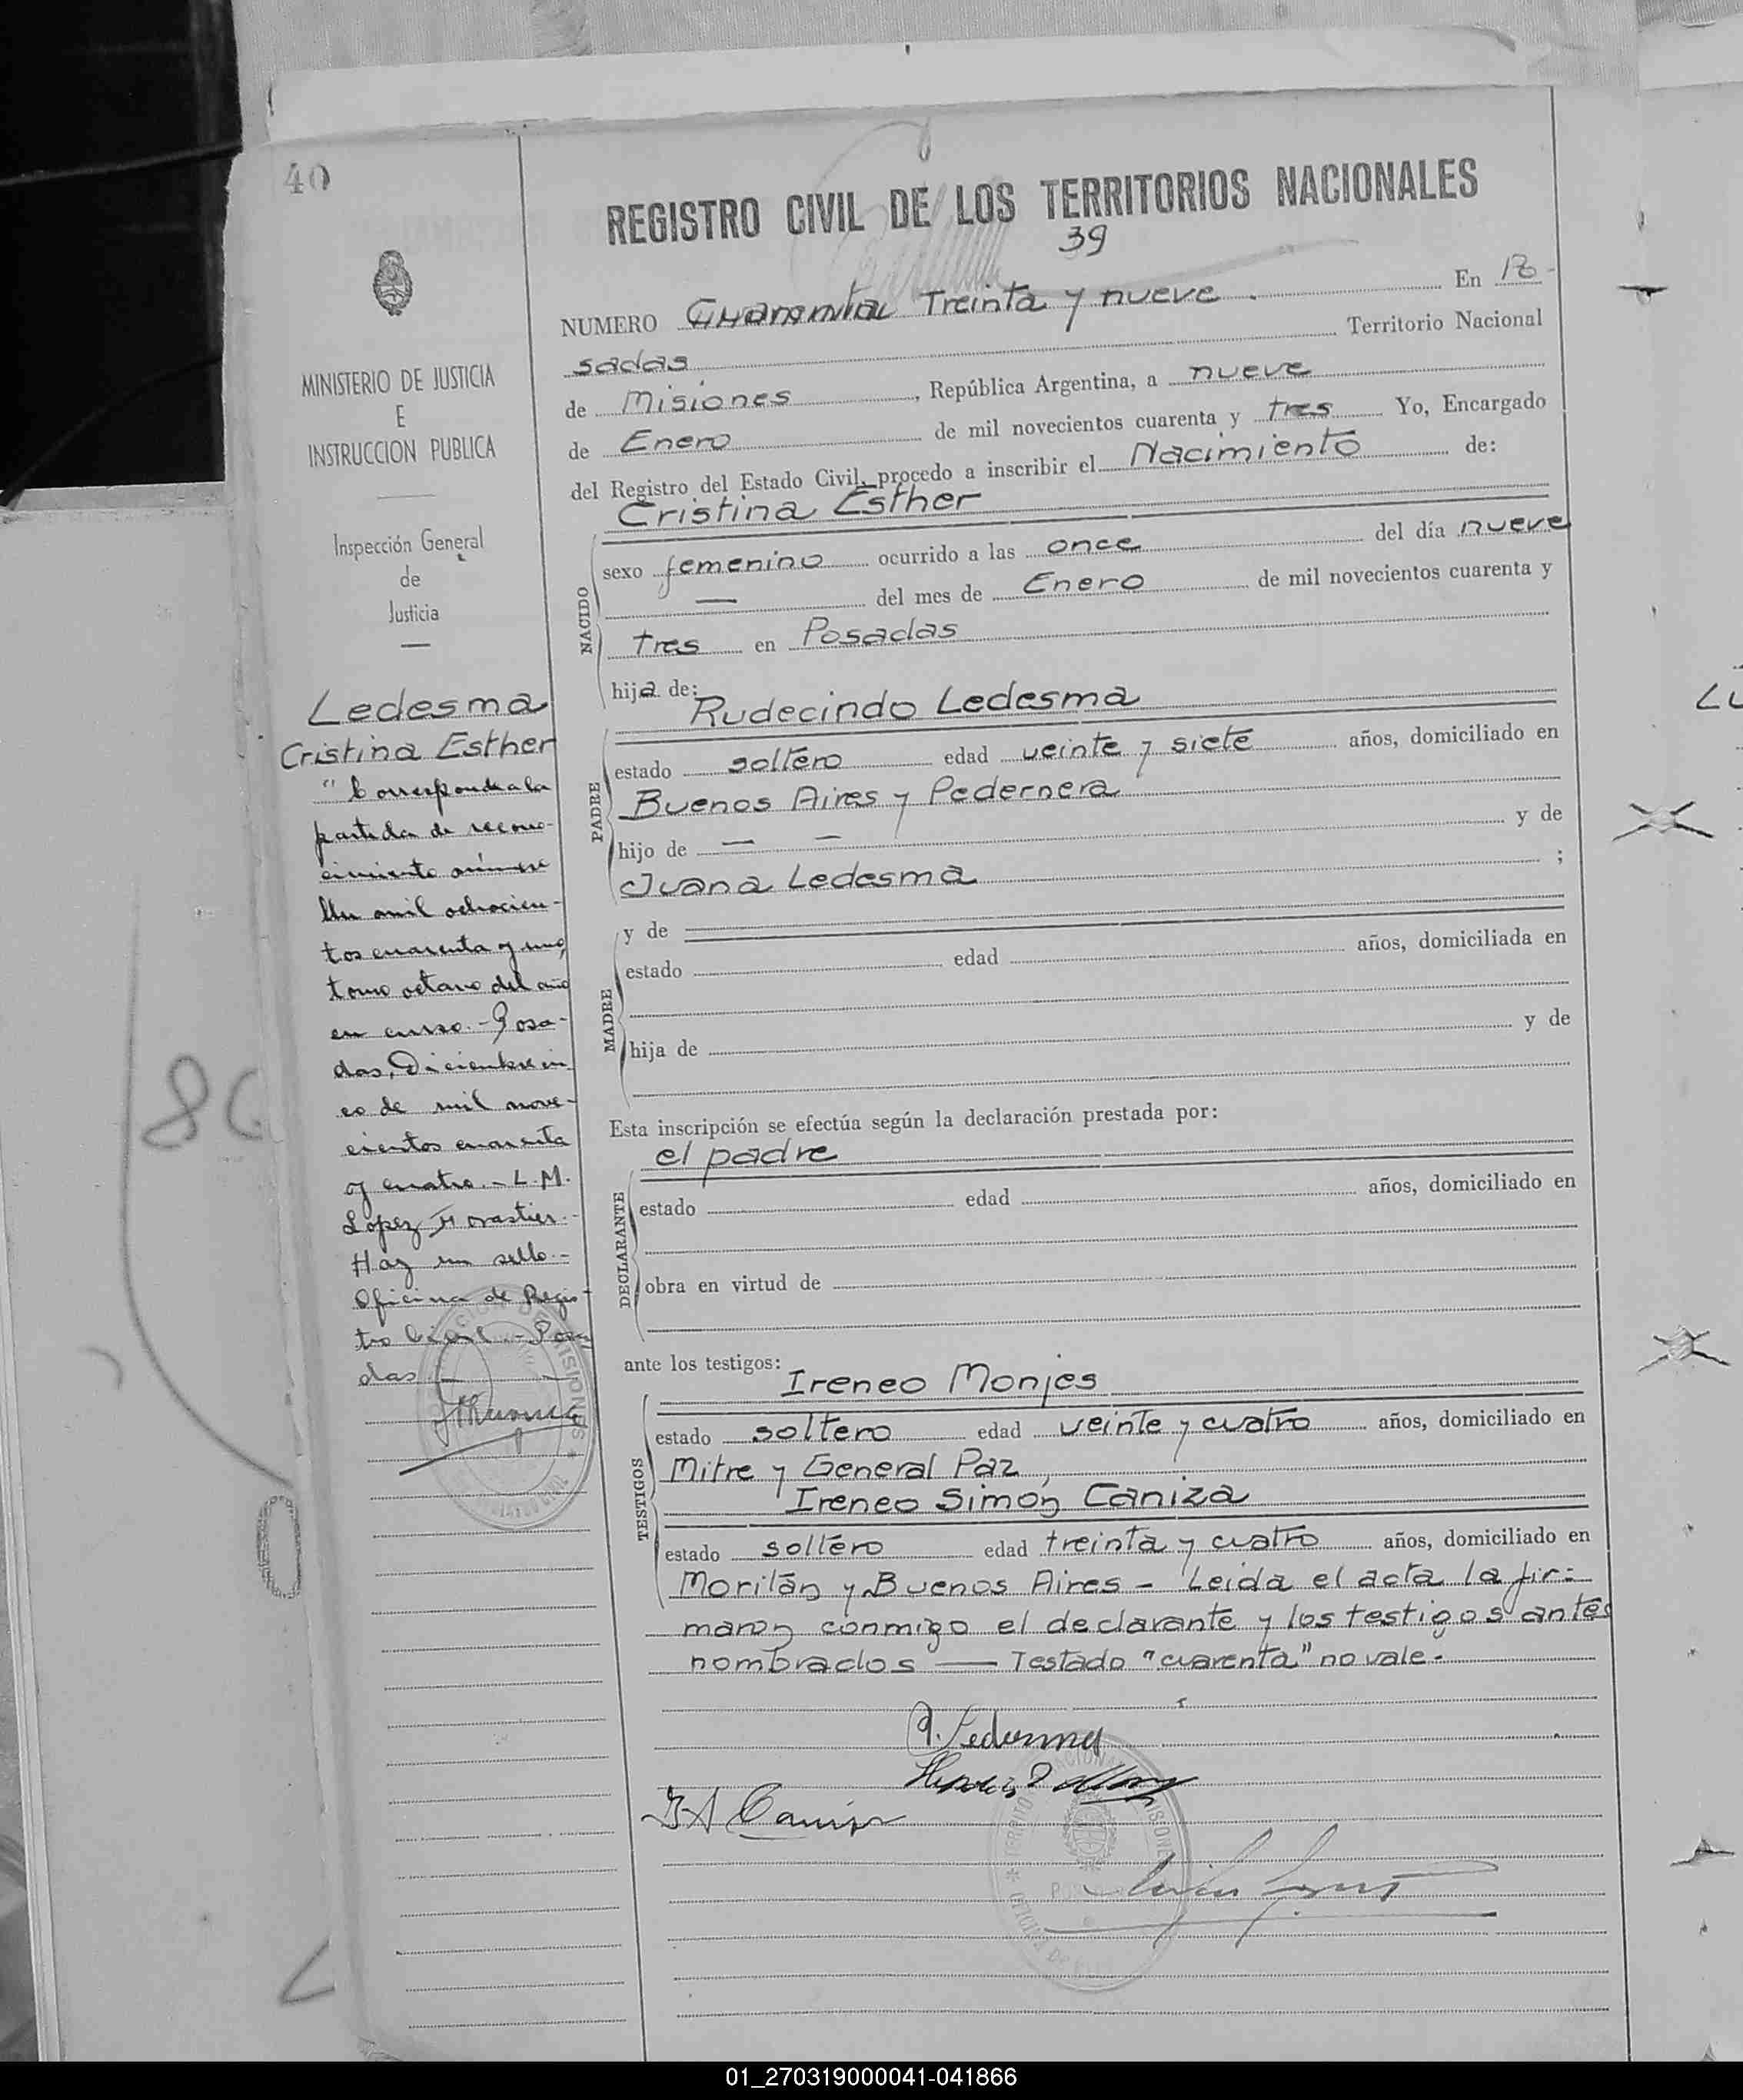 40
REGISTRO CIVIL DE LOS TERRITORIOS NACIONALES
39
NUMERO Cuarenta Treinta y nueve . En Po-
sadas Territorio Nacional
de Misiones, República Argentina, a nueve
de Enero de mil novecientos cuarenta y tres Yo, Encargado
del Registro del Estado Civil, procedo a inscribir el Nacimiento de:
Cristina Esther
NACIDO
sexo femenino ocurrido a las once del día nueve
— del mes de Enero de mil novecientos cuarenta y
tres en Posadas
hija de:
Rudecindo Ledesma
PADRE
estado soltero edad veinte y siete años, domiciliado en
Buenos Aires y Pedernera
hijo de — — y de
Juana Ledesma ;
y de
MADRE
estado edad años, domiciliada en
hija de y de
Esta inscripción se efectúa según la declaración prestada por:
el padre
DECLARANTE
estado edad años, domiciliado en
obra en virtud de
ante los testigos:
Ireneo Monjes
TESTIGOS
estado soltero edad veinte y cuatro años, domiciliado en
Mitre y General Paz,
Ireneo Simón Caniza
estado soltero edad treinta y cuatro años, domiciliado en
Morilán y Buenos Aires - Leida el acta la fir=
maron conmigo el declarante y los testigos antes
nombrados — Testado "cuarenta" no vale.
MINISTERIO DE JUSTICIA
E
INSTRUCCION PUBLICA
Inspección General
de
Justicia
Ledesma
Cristina Esther
"Corresponde a la
partida de recono-
cimiento número
Un mil ochocien-
tos cuarenta y uno,
tomo octavo del año
en curso.- Posa-
das, Diciembre cin
co de mil nove-
cientos cuarenta
y cuatro.- L.M.
Lopez Forastier.-
Hay un sello.-
Oficina de Regis-
tro Civil - Posa
das
R. Ledesma
I S Caniza
86
01_270319000041-041866